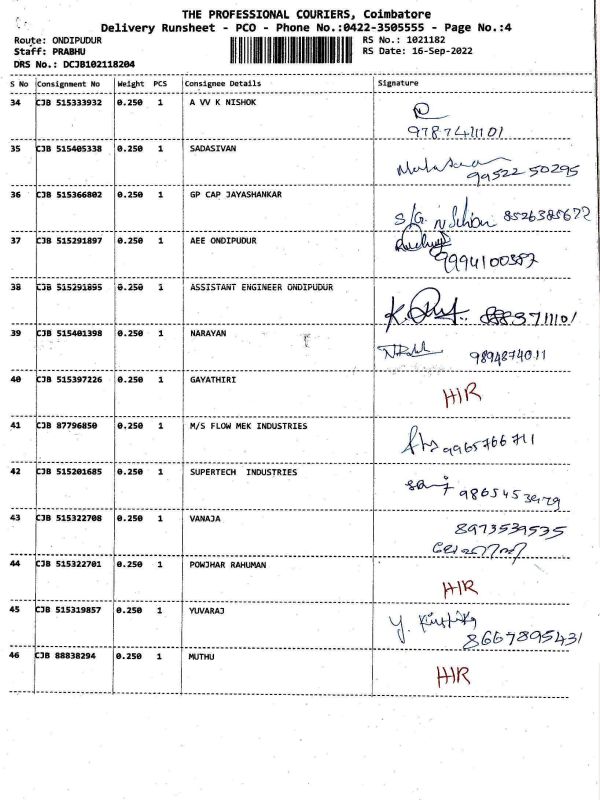 THE PROFESSIONAL COURIERS, Coimbatore
Delivery Runsheet - PCO - Phone No.:0422-3505555 - Page No.:4
Route: ONDIPUDUR RS No.: 1021182
Staff: PRABHU RS Date: 16-Sep-2022
DRS No.: DCJB102118204
S No Consignment No Weight PCS Consignee Details Signature
34 CJB 515333932 0.250 1 A VV K NISHOK
9787411101
35 CJB 515405338 0.250 1 SADASIVAN
99522 50295
36 CJB 515366802 0.250 1 GP CAP JAYASHANKAR
S/G. 8526385672
37 CJB 515291897 0.250 1 AEE ONDIPUDUR
9994100387
38 CJB 515291895 0.250 1 ASSISTANT ENGINEER ONDIPUDUR
39 CJB 515401398 0.250 1 NARAYAN
9894874011
40 CJB 515397226 0.250 1 GAYATHIRI
HIR
41 CJB 87796850 0.250 1 M/S FLOW MEK INDUSTRIES
9965766711
42 CJB 515201685 0.250 1 SUPERTECH INDUSTRIES
9865453979
43 CJB 515322708 0.250 1 VANAJA
8973539535
44 CJB 515322701 0.250 1 POWJHAR RAHUMAN
HIR
45 CJB 515319857 0.250 1 YUVARAJ
8667895431
46 CJB 88838294 0.250 1 MUTHU
HIR